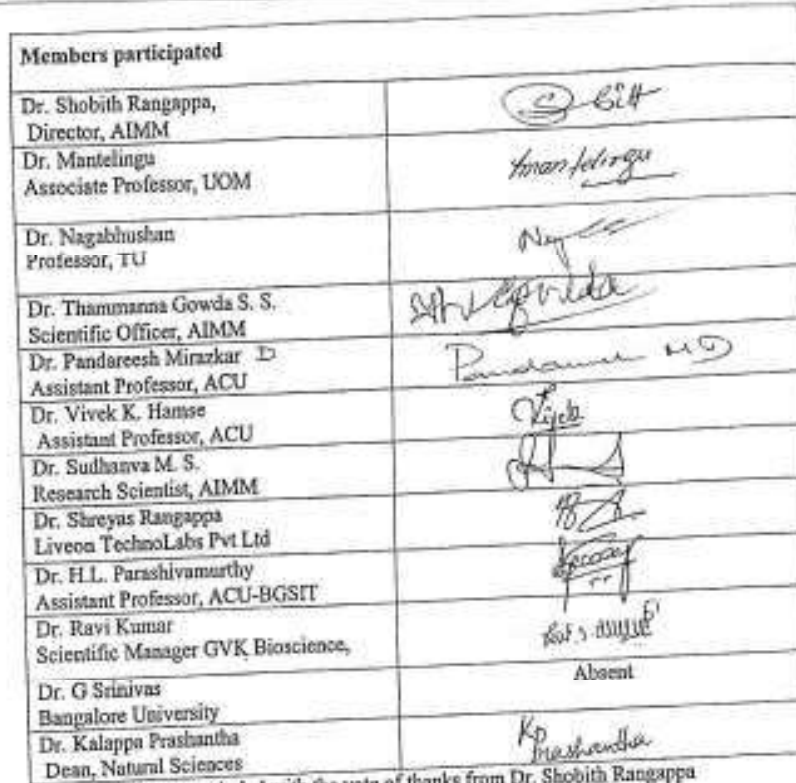 Members participated
Dr. Shobith Rangappa,
Director, AIMM
Dr. Mantelingu
Associate Professor, UOM
Mantelingu
Dr. Nagabhushan
Professor, TU
Dr. Thammanna Gowda S. S.
Scientific Officer, AIMM
Dr. Pandareesh Mirazkar D
Assistant Professor, ACU
M D
Dr. Vivek K. Hamse
Assistant Professor, ACU
Dr. Sudhanva M. S.
Research Scientist, AIMM
Dr. Shreyas Rangappa
Liveon TechnoLabs Pvt Ltd
Dr. H.L. Parashivamurthy
Assistant Professor, ACU-BGSIT
Dr. Ravi Kumar
Scientific Manager GVK Bioscience,
Dr. G Srinivas
Bangalore University
Absent
Dr. Kalappa Prashantha
Dean, Natural Sciences
K Prashantha
with the vote of thanks from Dr. Shobith Rangappa